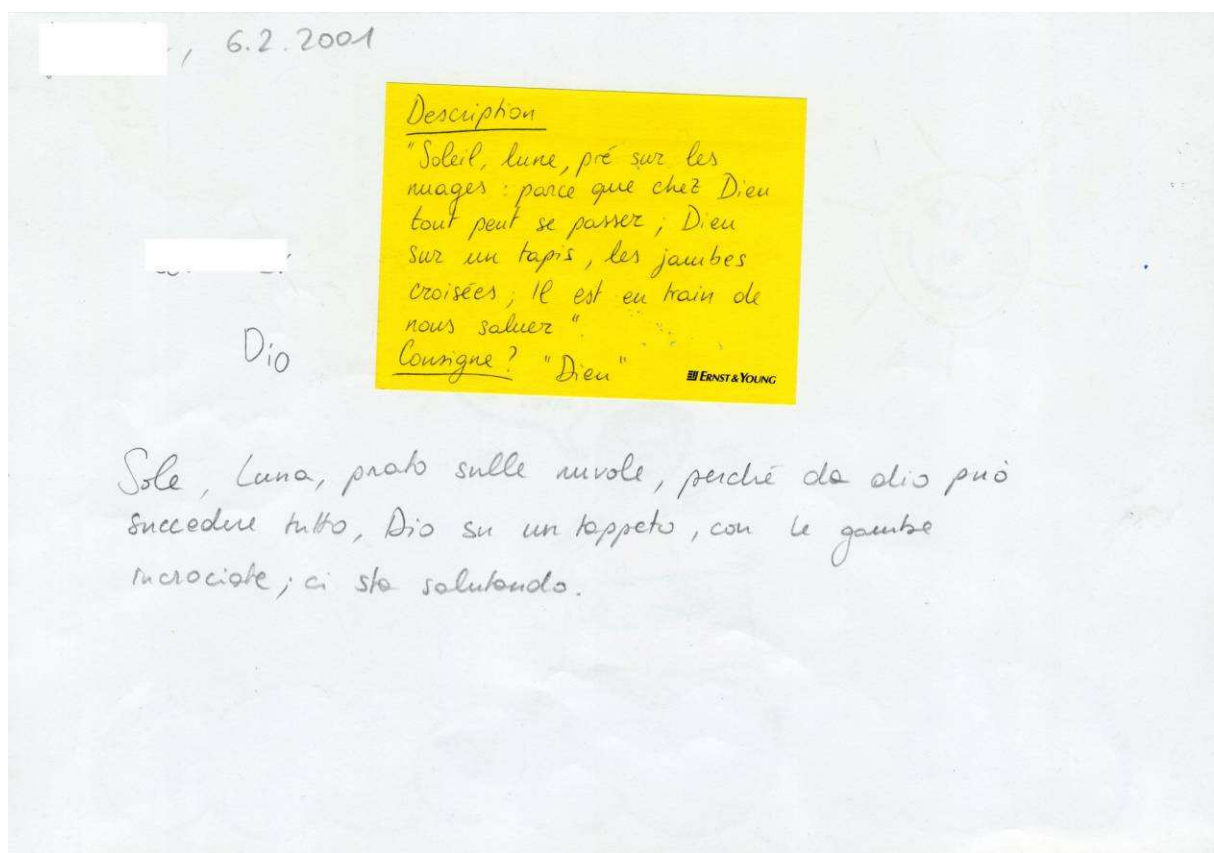 , 6.2.2001
Description
"Soleil, lune, pré sur les
nuages : parce que chez Dieu
tout peut se passer ; Dieu
sur un tapis, les jambes
croisées ; Il est en train de
nous saluer"
Consigne? "Dieu"
ERNST & YOUNG
Dio
Sole, Luna, prato sulle nuvole, perché da dio può
succedere tutto, Dio su un tappeto, con le gambe
incrociate; ci sta salutando.